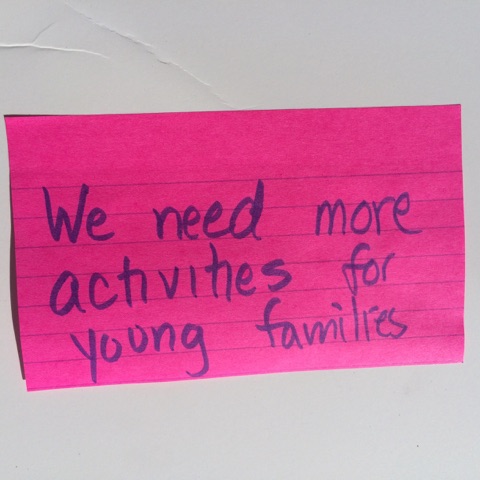 We need more
activities for
young families